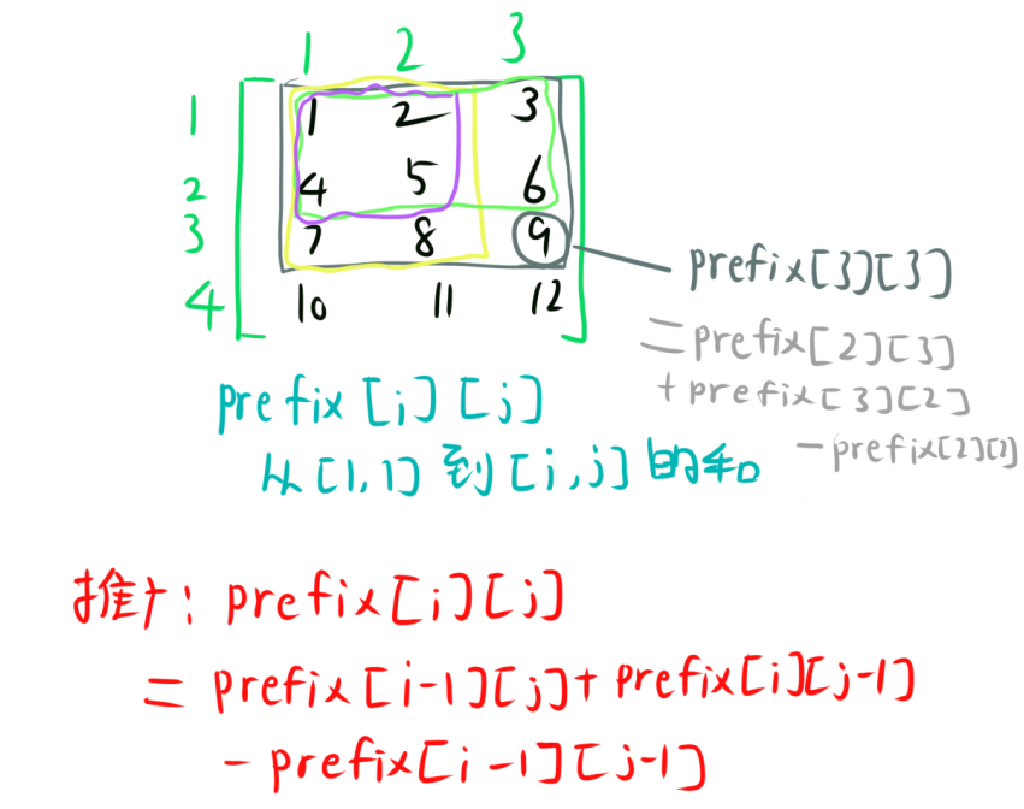 1 2 3
1 1 2 3
2 4 5 6
3 7 8 9
4 10 11 12
prefix[3][3]
=prefix[2][3]
+prefix[3][2]
-prefix[2][2]
prefix[i][j]
从[1,1]到[i,j]的和
推广:prefix[i][j]
=prefix[i-1][j]+prefix[i][j-1]
-prefix[i-1][j-1]